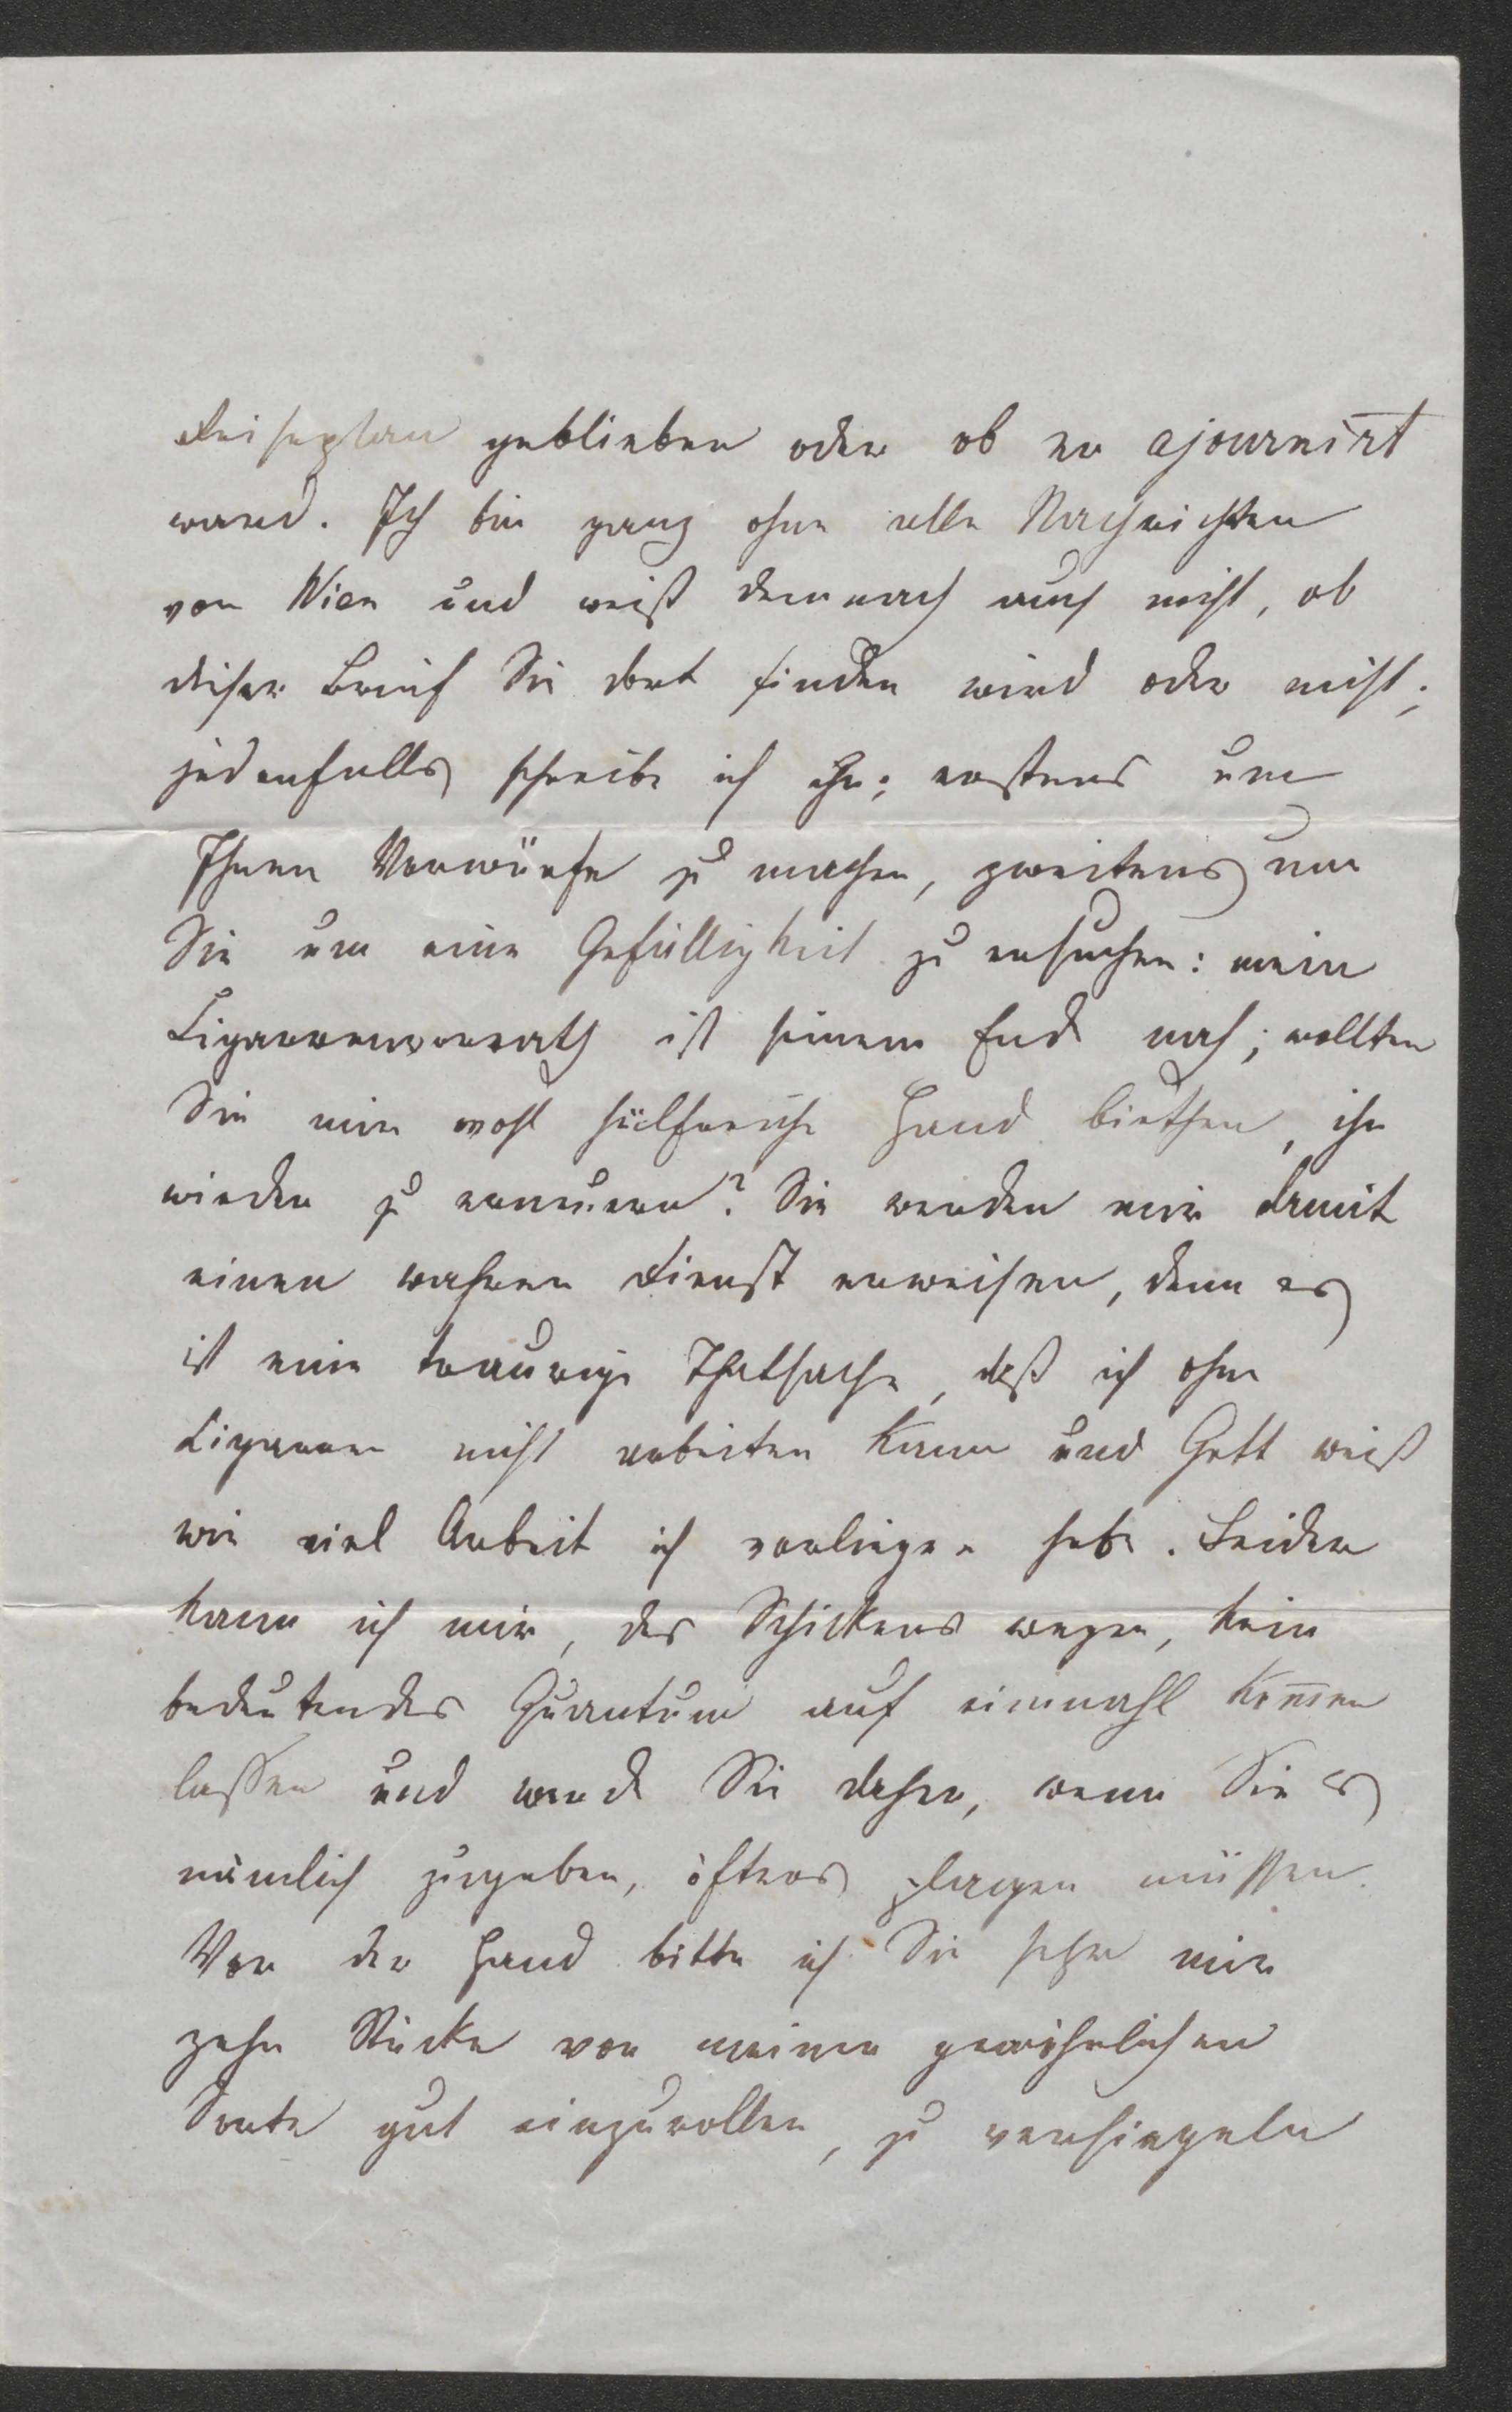 Reiseplan geblieben oder ob er ajournirt
ward. Ich bin ganz ohne alle Nachrichten
von Wien und weiß demnach auch nicht, ob
dieser Brief Sie dort finden wird oder nicht;
jedenfalls schreibe ich ihn; erstens um
Ihnen Vorwürfe zu machen, zweitens um
Sie um eine Gefälligkeit zu ersuchen: mein
Cigarrenvorrath ist seinem Ende nah; wollten
Sie mir wohl hülfreiche Hand biethen, ihn
wieder zu erneuern? Sie werden mir damit
einen wahren Dienst erweisen, denn es
ist eine traurige Thatsache, daß ich ohne
Cigarren nicht arbeiten kann und Gott weiß
wie viel Arbeit ich vorliegen habe. Leider
kann ich mir, des Schickens wegen, kein
bedeutendes Quantum auf einmahl kom̅en
lassen und werde Sie daher, wenn Sie es
nämlich zugeben, öfters plagen müssen.
Vor der Hand bitte ich Sie sehr mir
zehn Stücke von meiner gewöhnlichen
Sorte gut einzurollen, zu versiegeln